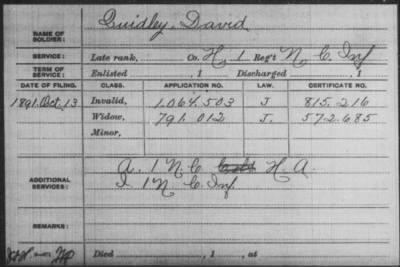 NAME OF SOLDIER: Quidley, David
SERVICE: Late rank, Co. H, 1 Reg't N C Inf
TERM OF SERVICE: Enlisted , 1 Discharged , 1
DATE OF FILING. CLASS. APPLICATION NO. LAW. CERTIFICATE NO.
1891 Oct. 13 Invalid, 1.064.503 J. 815.216
Widow, 791.012 J. 572.685
Minor,
ADDITIONAL SERVICES: A. 1 N. C. H. A.
I. 1 N C Inf.
REMARKS:
Died , 1 , at